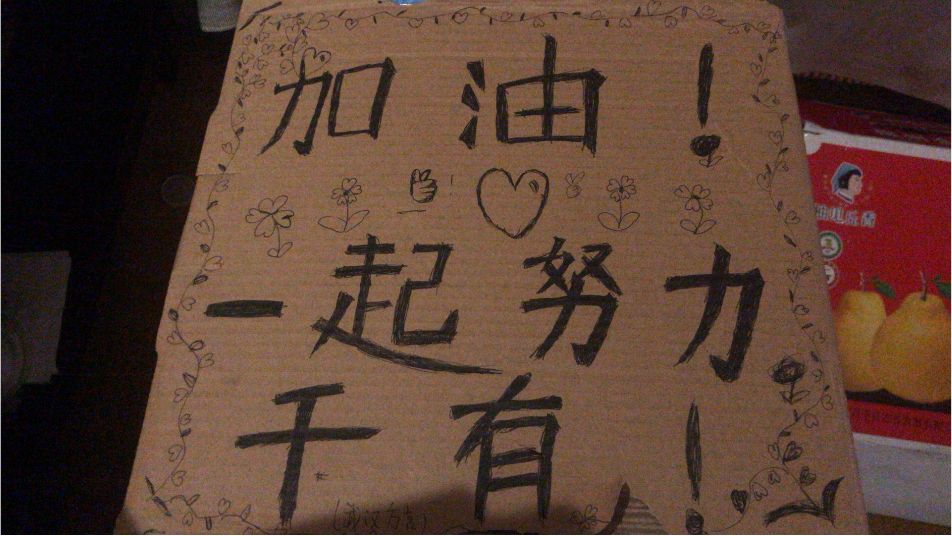 加油！
一起努力
干有！
(武汉方言)